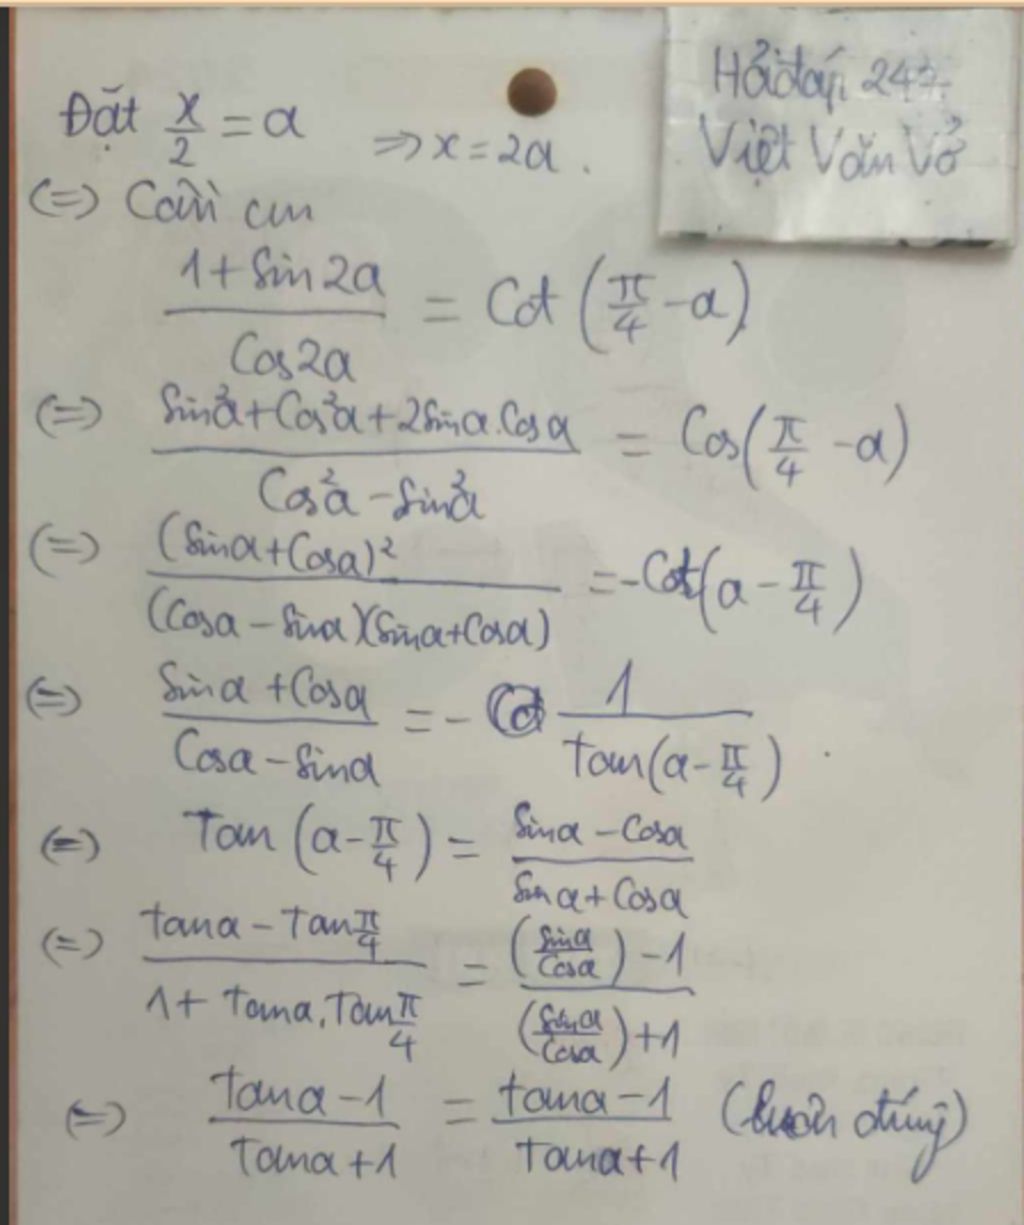 Hỏi đáp 247
Việt Văn Võ
Đặt x/2 = a ⇒ x = 2a.
(=) Cần cm
(1 + Sin2a)/(Cos2a) = Cot(π/4 - a)
(=) (Sin²a + Cos²a + 2Sina.Cosa)/(Cos²a - Sin²a) = Cos(π/4 - a)
(=) (Sina + Cosa)²/((Cosa - Sina)(Sina + Cosa)) = -Cot(a - π/4)
(=) (Sina + Cosa)/(Cosa - Sina) = - 1/(tan(a - π/4))
(=) Tan(a - π/4) = (Sina - Cosa)/(Sina + Cosa)
(=) (tana - Tanπ/4)/(1 + Tana.Tanπ/4) = ((Sina/Cosa) - 1)/((Sina/Cosa) + 1)
(=) (tana - 1)/(Tana + 1) = (tana - 1)/(Tana + 1) (luôn đúng)